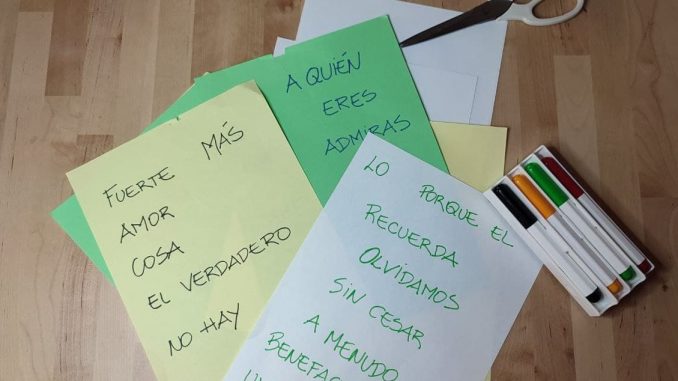 A QUIÉN
ERES
ADMIRAS
MÁS
FUERTE
AMOR
COSA
EL VERDADERO
NO HAY
LO PORQUE EL
RECUERDA
OLVIDAMOS
SIN CESAR
A MENUDO